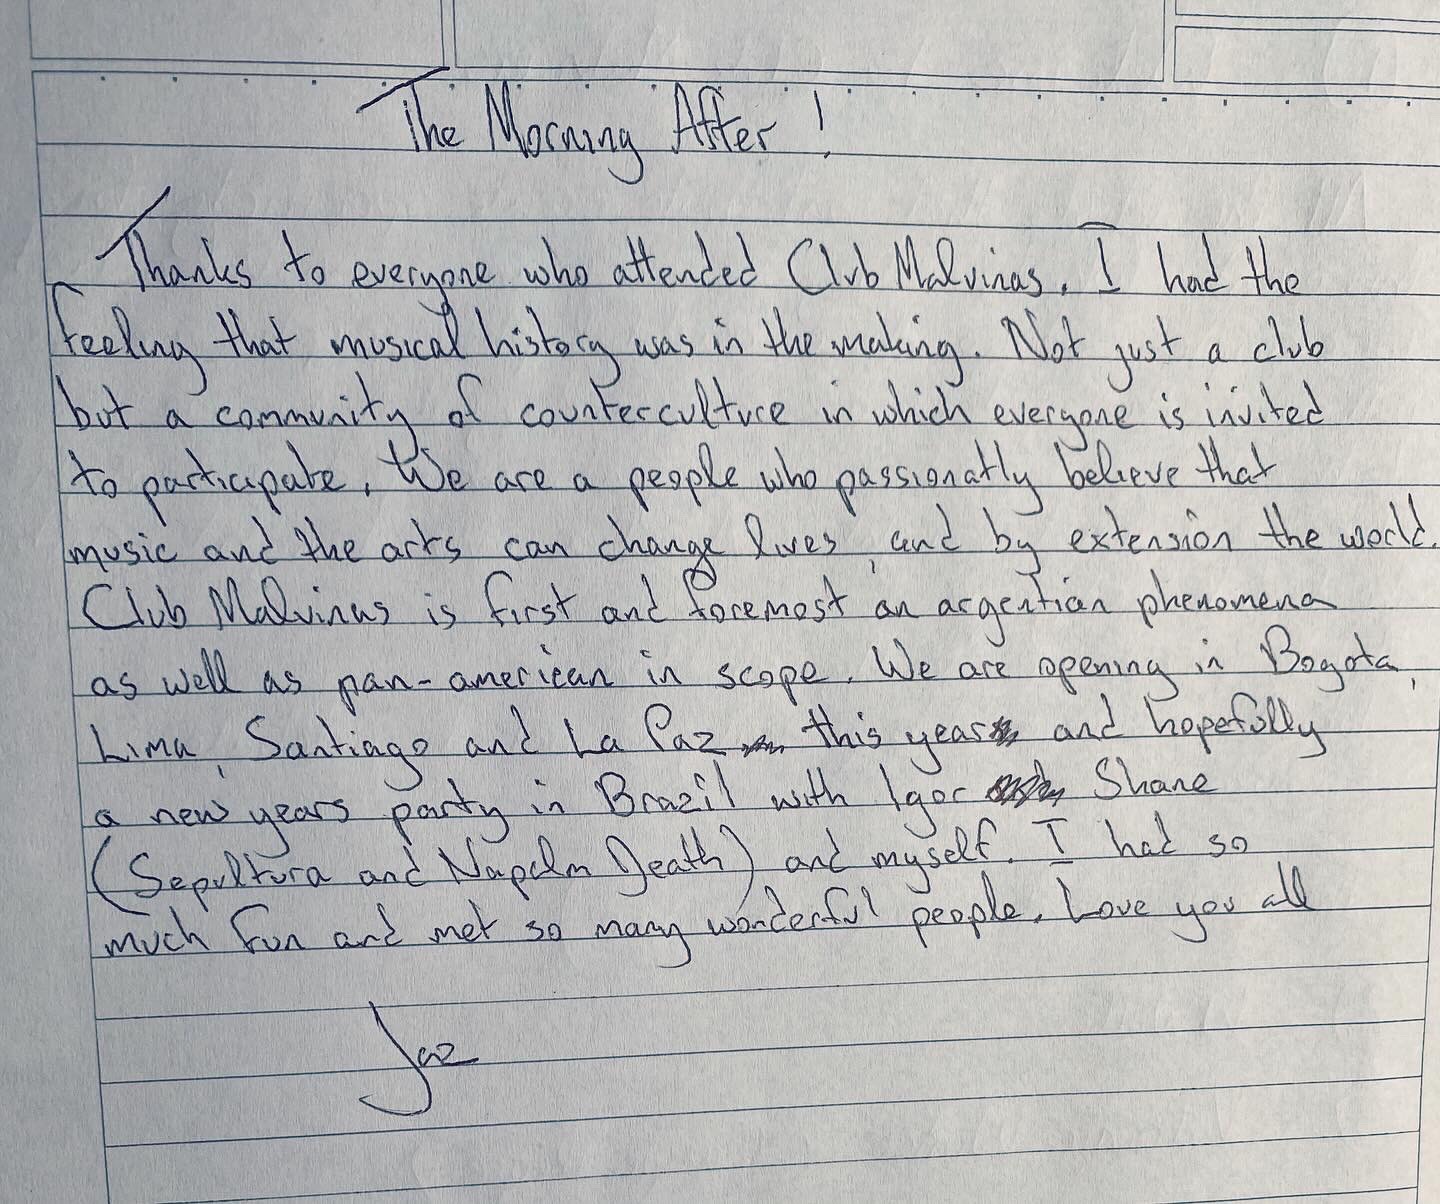 The Morning After!
Thanks to everyone who attended Club Malvinas. I had the
feeling that musical history was in the making. Not just a club
but a community of counterculture in which everyone is invited
to participate. We are a people who passionatly believe that
music and the arts can change lives, and by extension the world.
Club Malvinas is first and foremost an argentian phenomena
as well as pan-american in scope. We are opening in Bogota,
Lima, Santiago and La Paz this year and hopefully
a new years party in Brazil with Igor Shane
(Sepultura and Napalm Death) and myself. I had so
much fun and met so many wonderful people. Love you all
Jaz